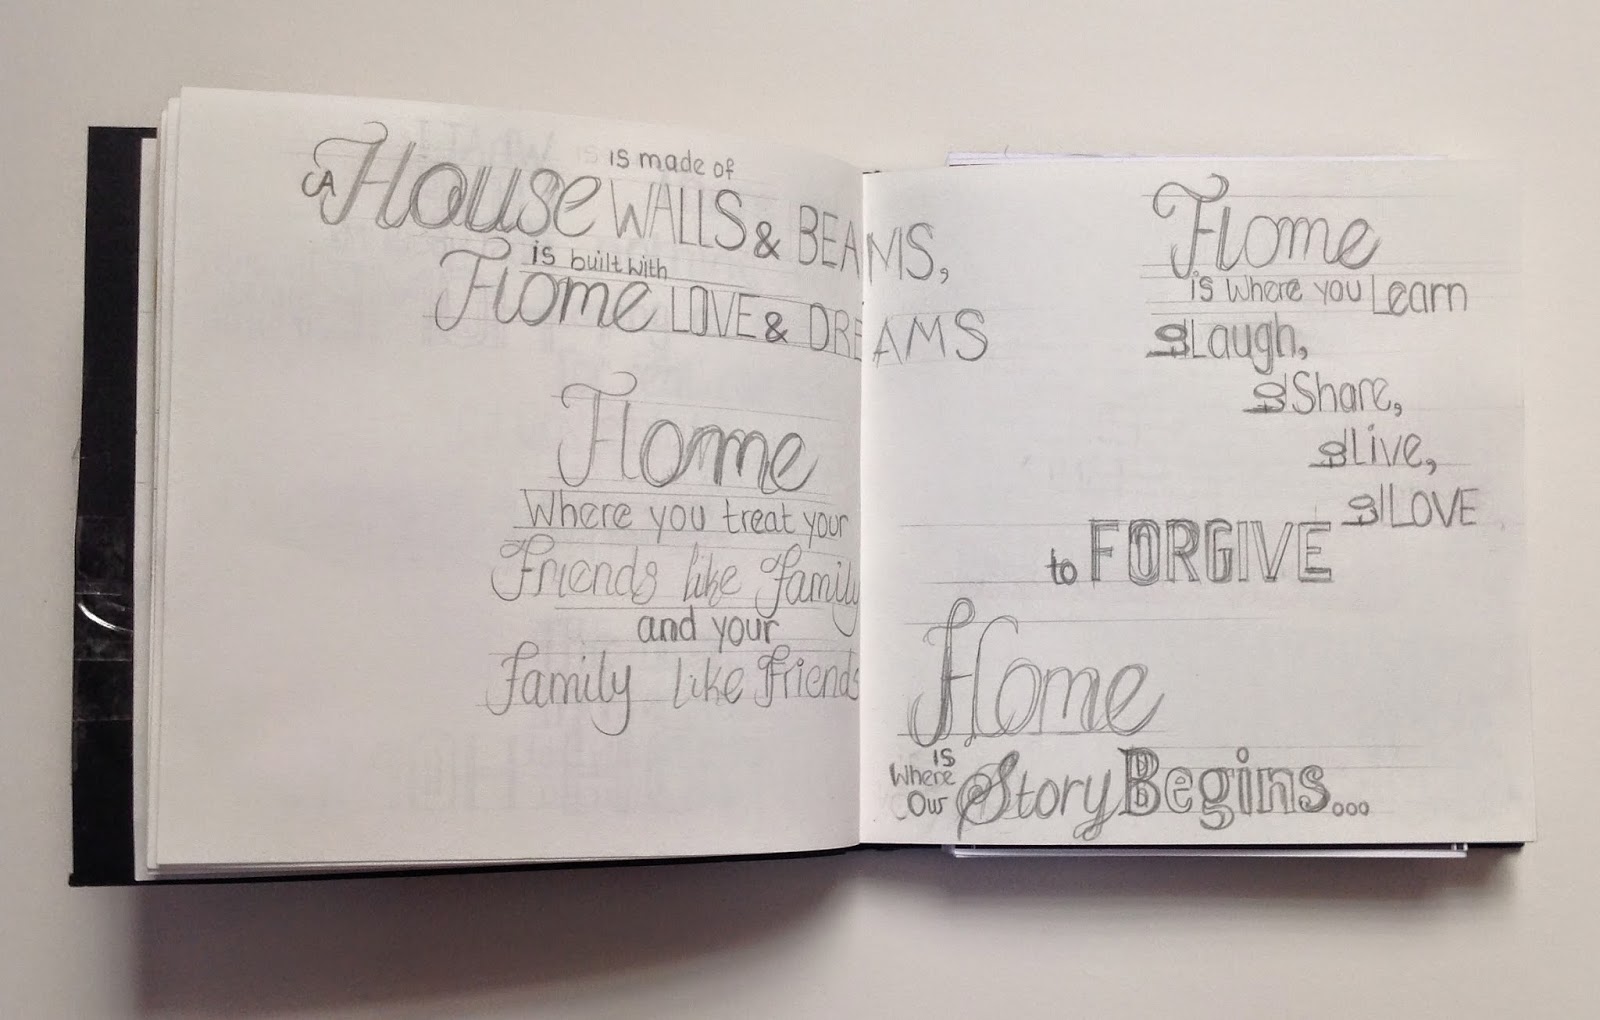 A House is made of WALLS & BEAMS,
Home is built with LOVE & DREAMS
Home
Where you treat your
Friends like family
and your
family like Friends
Home
is where you Learn
to Laugh,
to Share,
to Live,
to LOVE
to FORGIVE
Home
is
Where
Our Story Begins...